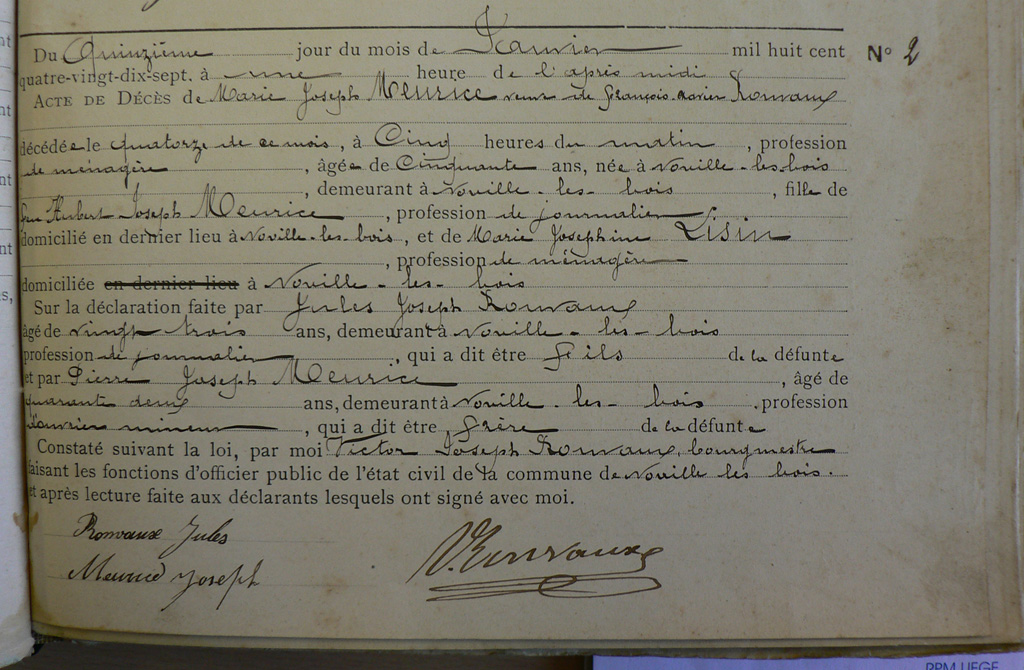 Du Quinzième jour du mois de Janvier mil huit cent N° 2
quatre-vingt-dix-sept. à une heure de l'après midi
ACTE DE DÉCÈS de Marie Joseph Meurice veuve de françois-xavier Romvaux
décédée le quatorze de ce mois, à Cinq heures du matin, profession
de ménagère, âgée de Cinquante ans, née à Noville-les-bois
, demeurant à Noville-les-bois, fille de
feu Hubert Joseph Meurice, profession de journalier
domicilié en dernier lieu à Noville-les-bois, et de Marie Josephine Lisin
, profession de ménagère
domiciliée en dernier lieu à Noville-les-bois
Sur la déclaration faite par Jules Joseph Romvaux
âgé de vingt trois ans, demeurant à Noville-les-bois
profession de journalier, qui a dit être fils de la défunte
et par Pierre Joseph Meurice, âgé de
quarante deux ans, demeurant à Noville-les-bois. profession
d'ouvrier mineur, qui a dit être frère de la défunte
Constaté suivant la loi, par moi Victor Joseph Romvaux, bourgmestre
faisant les fonctions d'officier public de l'état civil de la commune de Noville les bois.
et après lecture faite aux déclarants lesquels ont signé avec moi.
Romvaux Jules
Meurice Joseph
V. Romvaux
RPM LIEGE